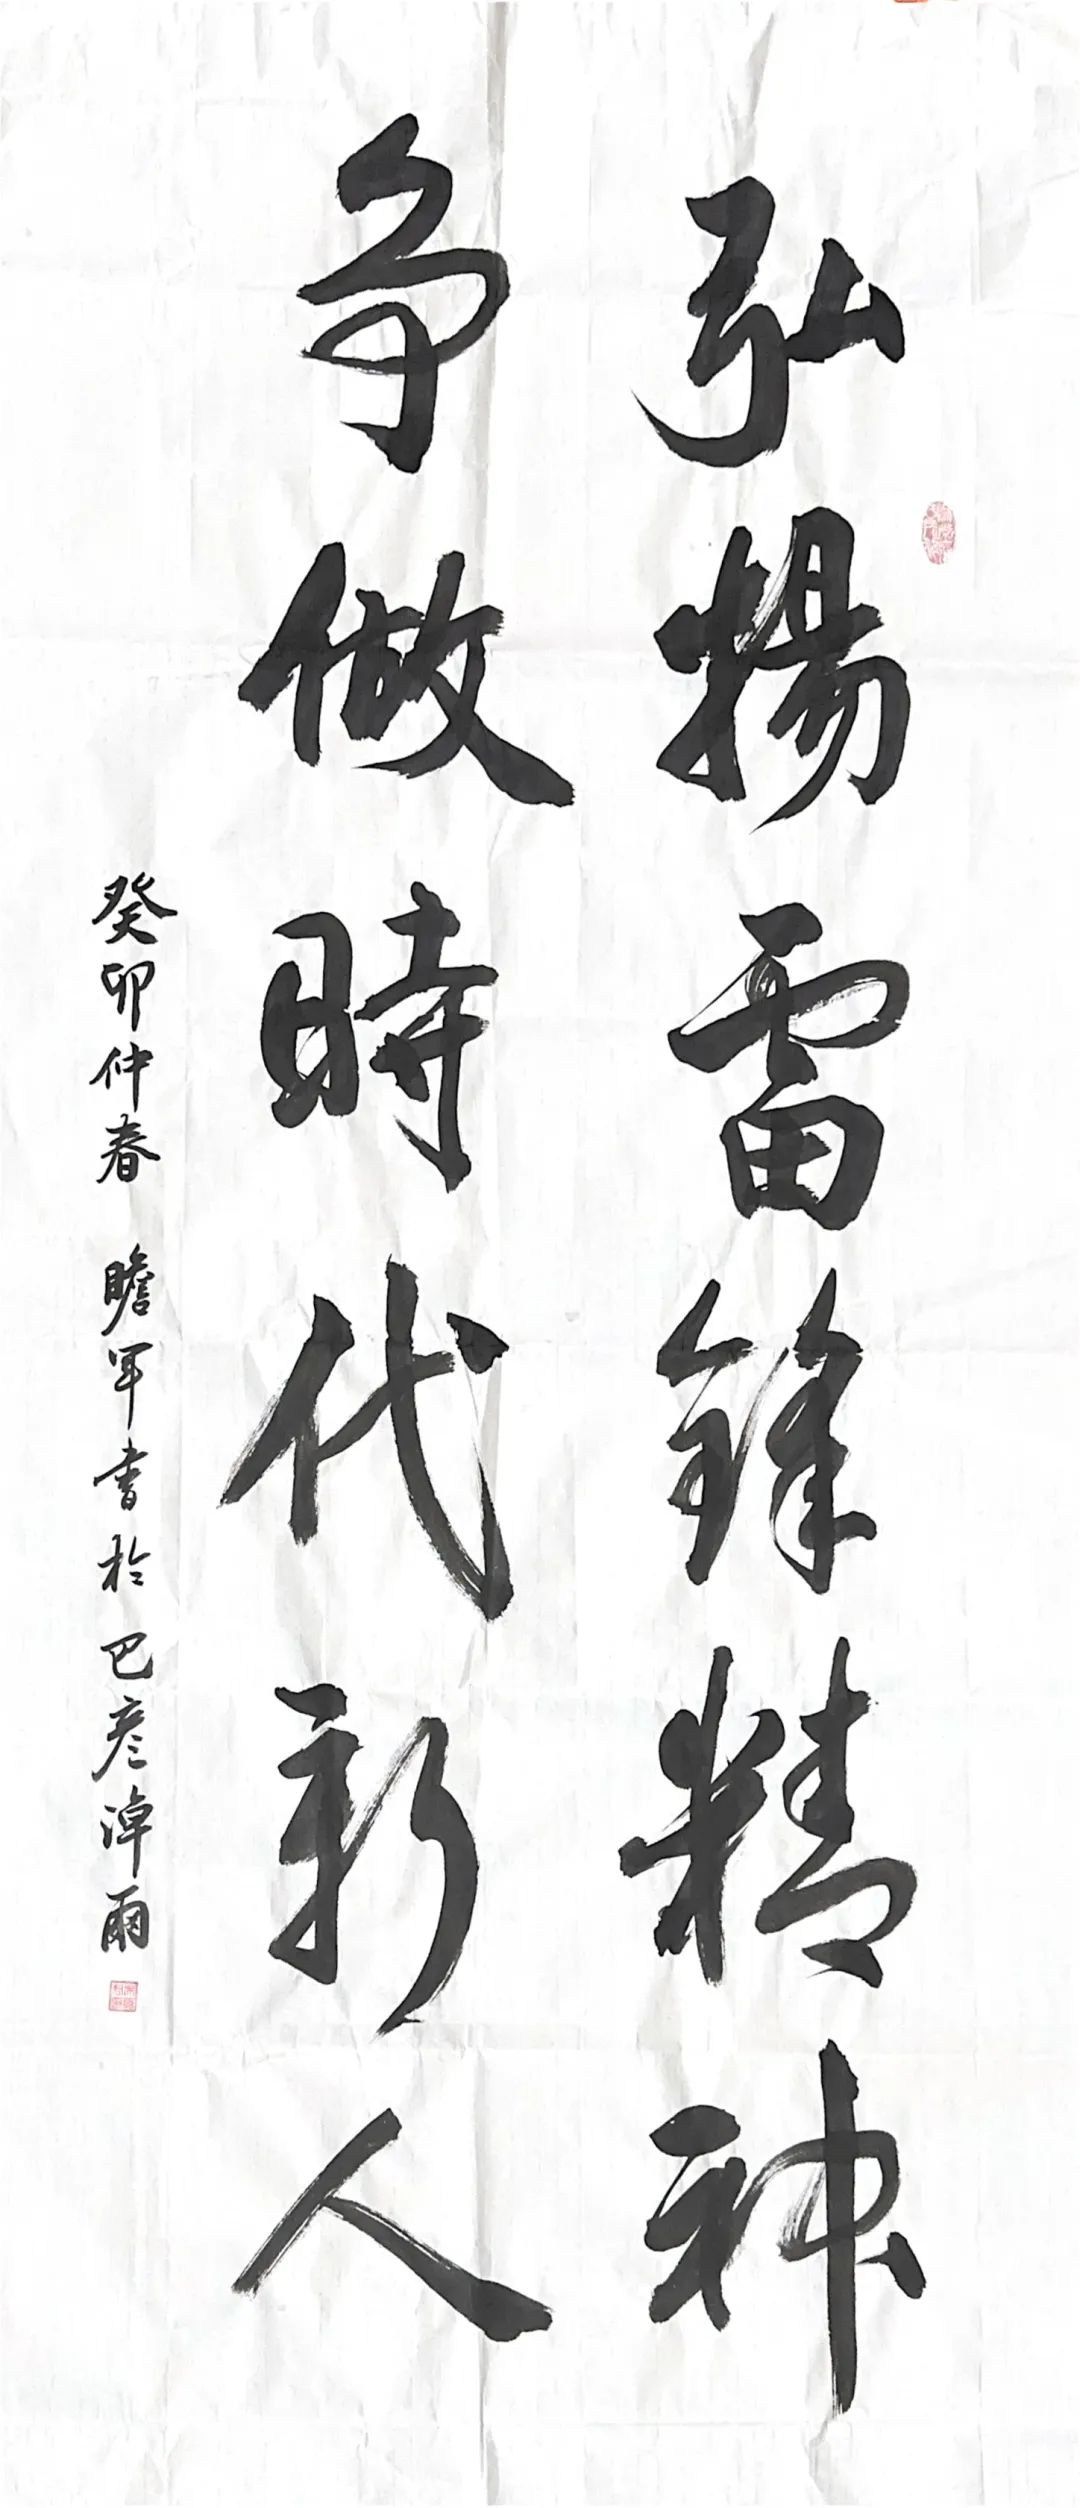 弘揚雷鋒精神
争做時代新人
癸卯仲春 瞻军書於巴彦淖爾